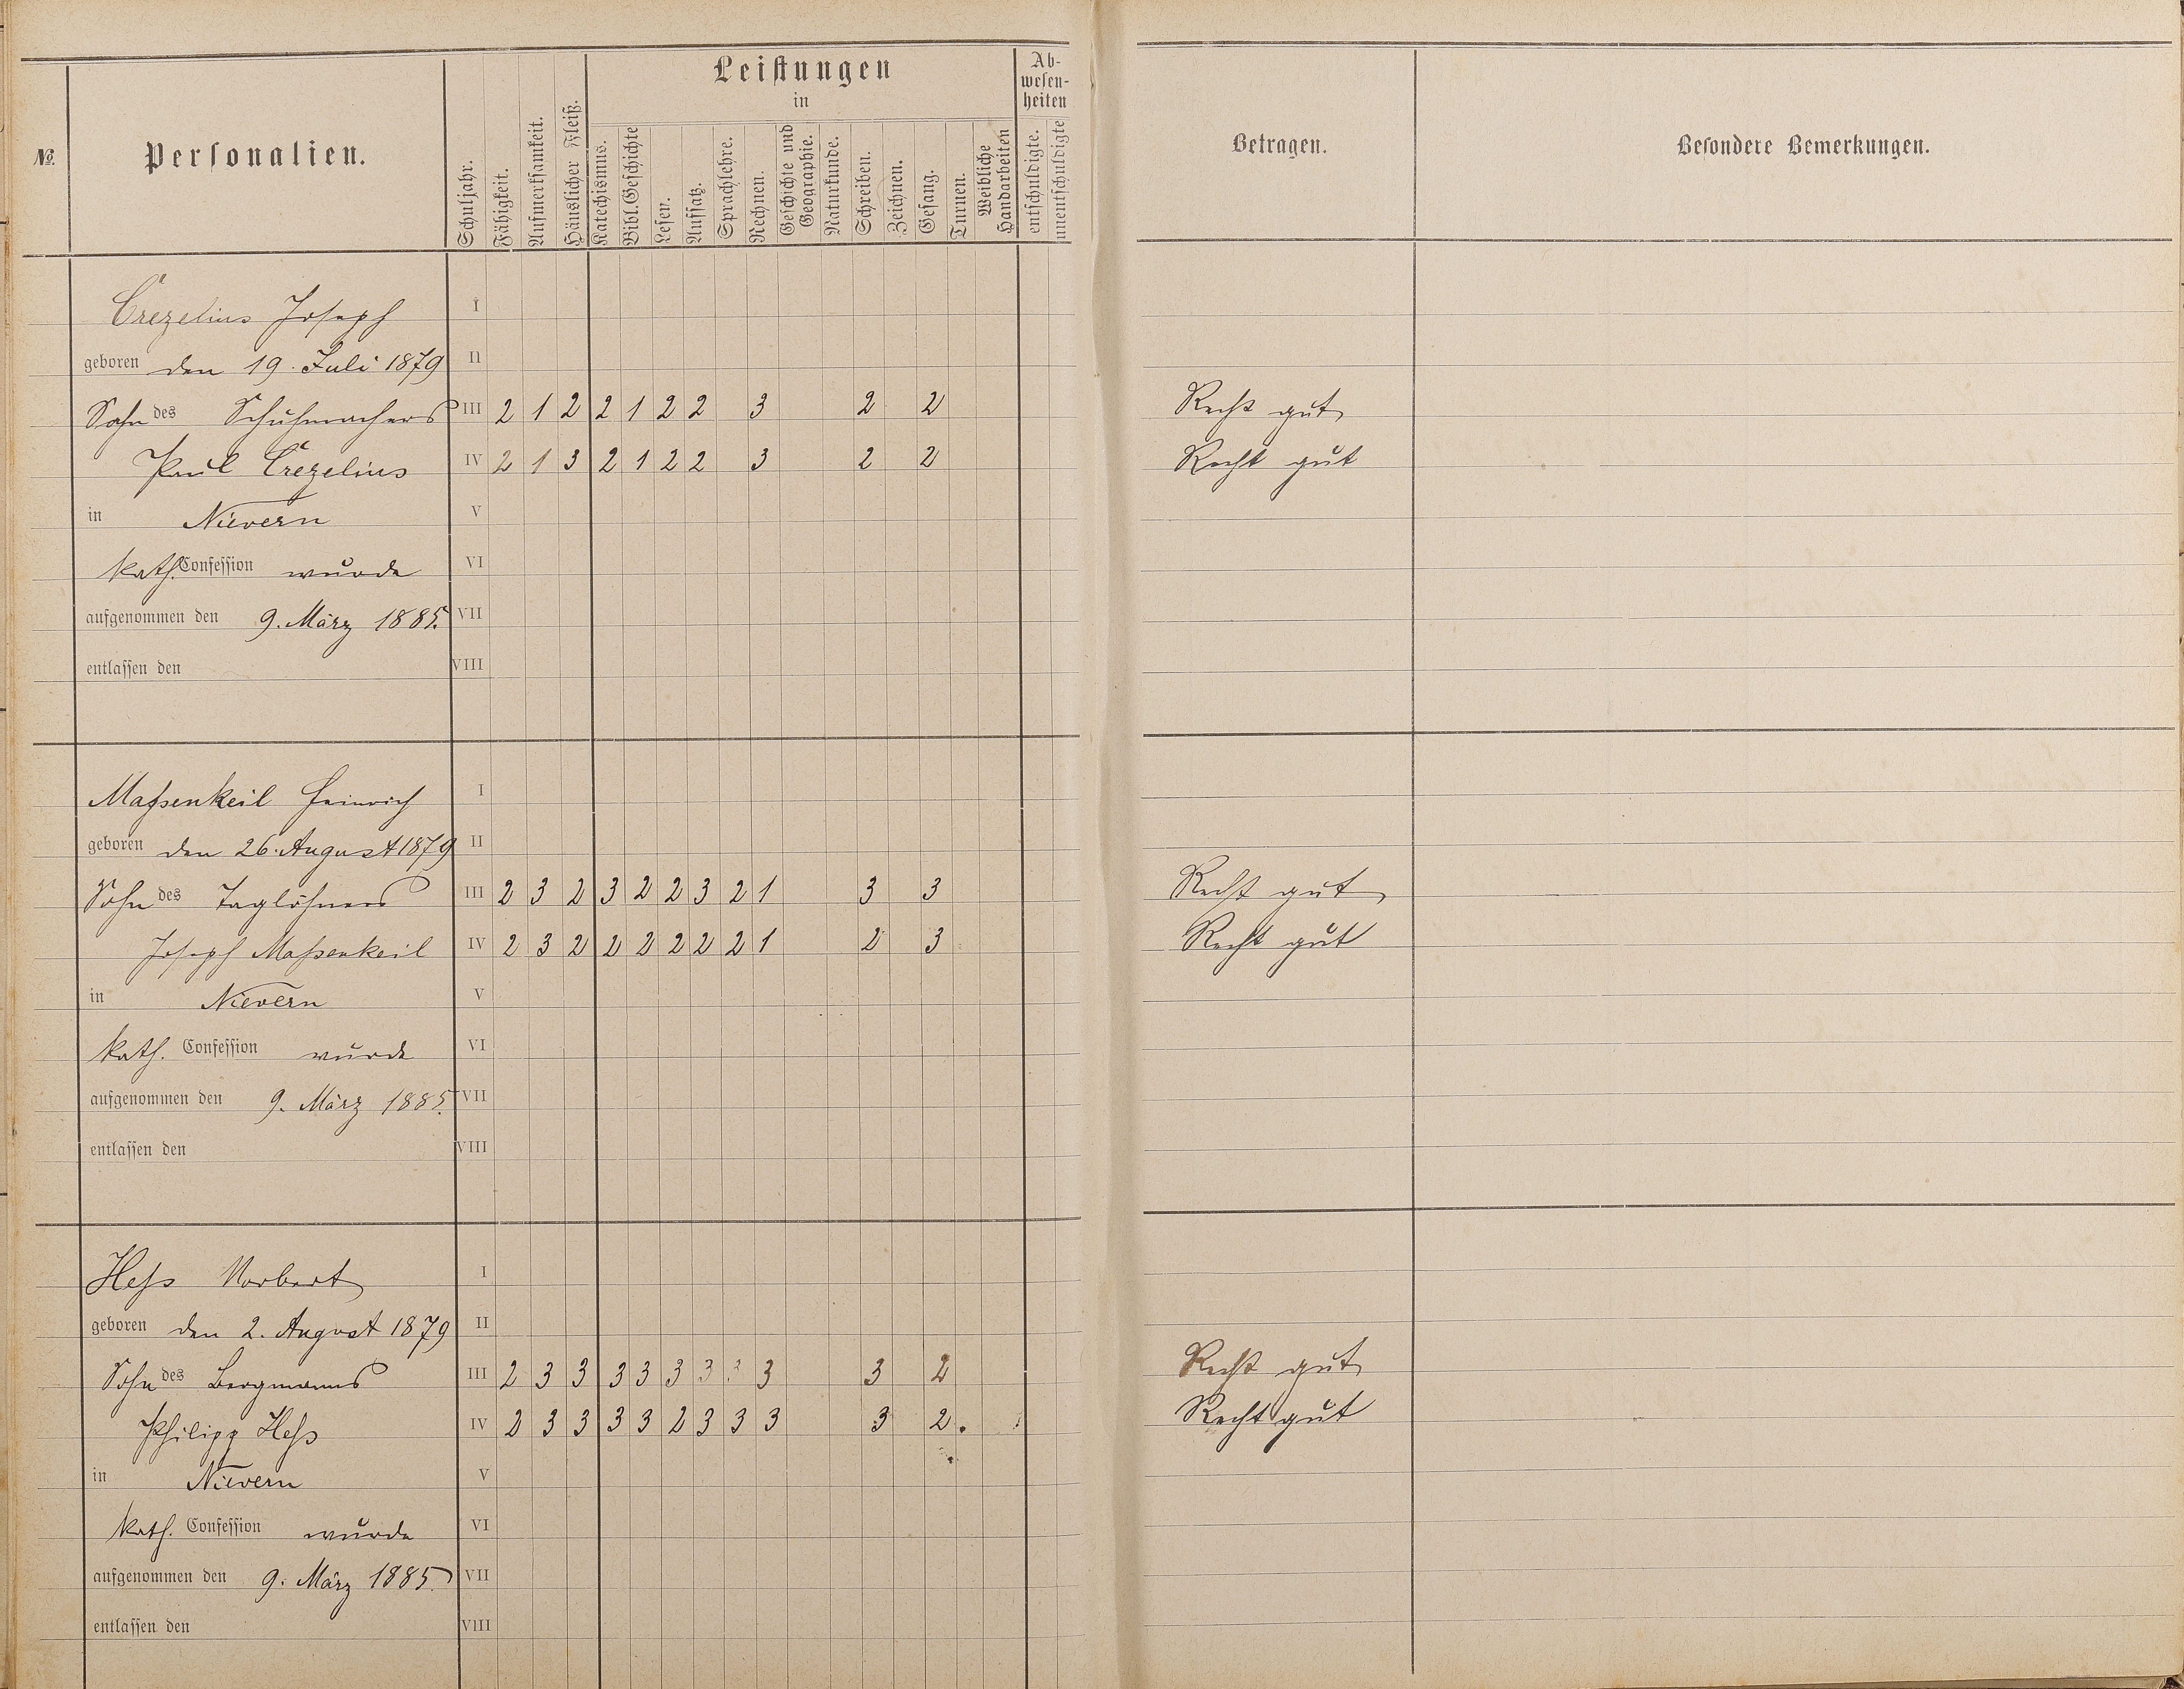 Leistungen
in
Ab-
wesen-
heiten
№. Personalien. Schuljahr. Fähigkeit. Aufmerksamkeit. Häuslicher Fleiß. Katechismus. Bibl. Geschichte Lesen. Aufsatz. Sprachlehre. Rechnen. Geschichte und Geographie. Naturkunde. Schreiben. Zeichnen. Gesang. Turnen. Weibliche Handarbeiten entschuldigte. unentschuldigte Betragen. Besondere Bemerkungen.
Crezelius Joseph I
geboren den 19. Juli 1879 II
Sohn des Schuhmachers III 2 1 2 2 1 2 2 3 2 2 Recht gut
Paul Crezelius IV 2 1 3 2 1 2 2 3 2 2 Recht gut
in Nievern V
kath. Confession wurde VI
aufgenommen den 9. März 1885. VII
entlassen den VIII
Maßenkeil Heinrich I
geboren den 26. August 1879 II
Sohn des Taglöhners III 2 3 2 3 2 2 3 2 1 3 3 Recht gut
Joseph Maßenkeil IV 2 3 2 2 2 2 2 2 1 2 3 Recht gut
in Nievern V
kath. Confession wurde VI
aufgenommen den 9. März 1885. VII
entlassen den VIII
Heß Norbert I
geboren den 2. August 1879 II
Sohn des Bergmanns III 2 3 3 3 3 3 3 3 3 3 2 Recht gut
Philipp Heß IV 2 3 3 3 3 2 3 3 3 3 2. Recht gut
in Nievern V
kath. Confession wurde VI
aufgenommen den 9. März 1885. VII
entlassen den VIII